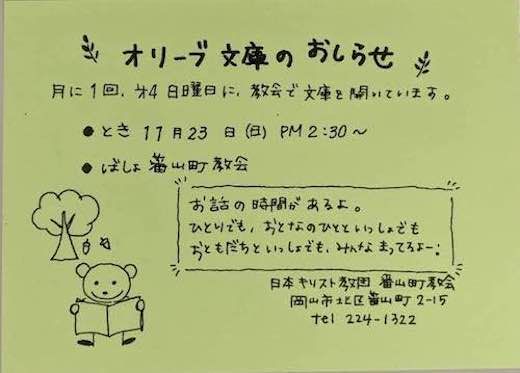 オリーブ文庫のおしらせ
月に1回、才4日曜日に、教会で文庫を開いています。
● とき 11月23日(日) PM 2:30〜
● ばしょ 蕃山町教会
お話の時間があるよ。
ひとりでも、おとなのひとといっしょでも
おともだちといっしょでも、みんなまってるよー!
日本キリスト教団 蕃山町教会
岡山市北区蕃山町2-15
tel 224-1322